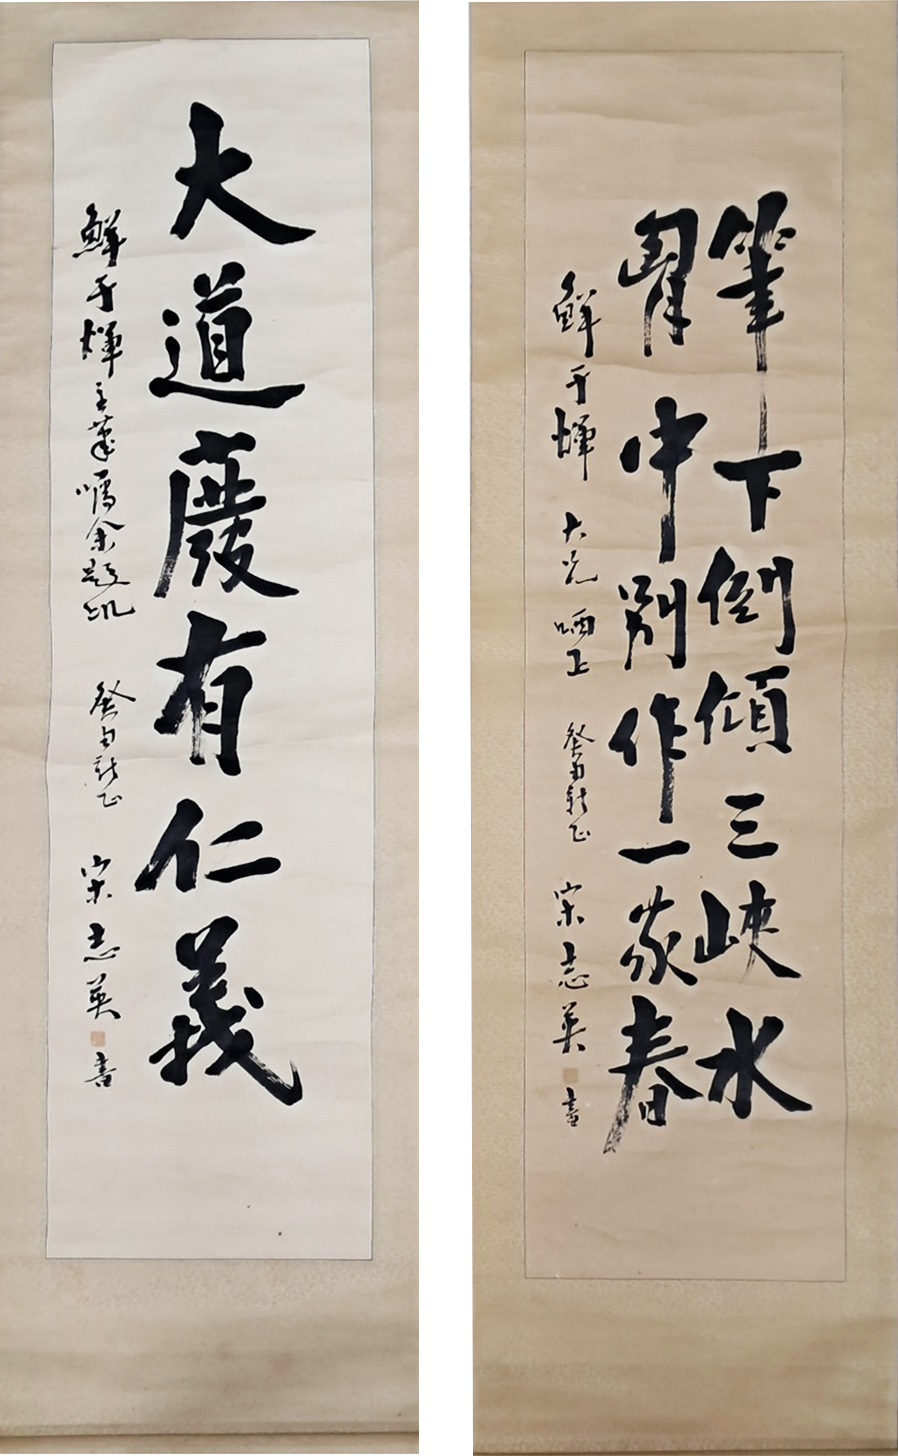 大道廢有仁義
鮮于煇主筆囑余題訊
癸酉新正 宋志英 書
筆下倒傾三峽水
胷中別作一家春
鮮于煇大兄哂正
癸酉新正 宋志英 書